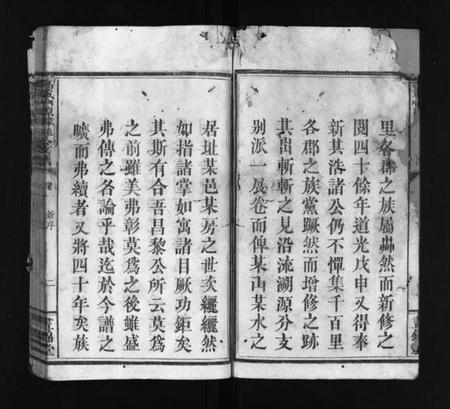 里各郡之族屬翕然而新修之
閱四十餘年道光戊申又得奉
新其浩諸公仍不憚集千百里
各郡之族黨蹶然而增修之跡
其嶄嶄之見沿流溯源分支
別派一展卷而俾某山某水之
居址某邑某房之世次纚纚然
如指諸掌如寓諸目厥功鉅矣
其斯有合吾昌黎公所云莫爲
之前雖美弗彰莫爲之後雖盛
弗傳之各論乎哉迄於今譜之
曠而弗續者又將四十年矣族
新序
二